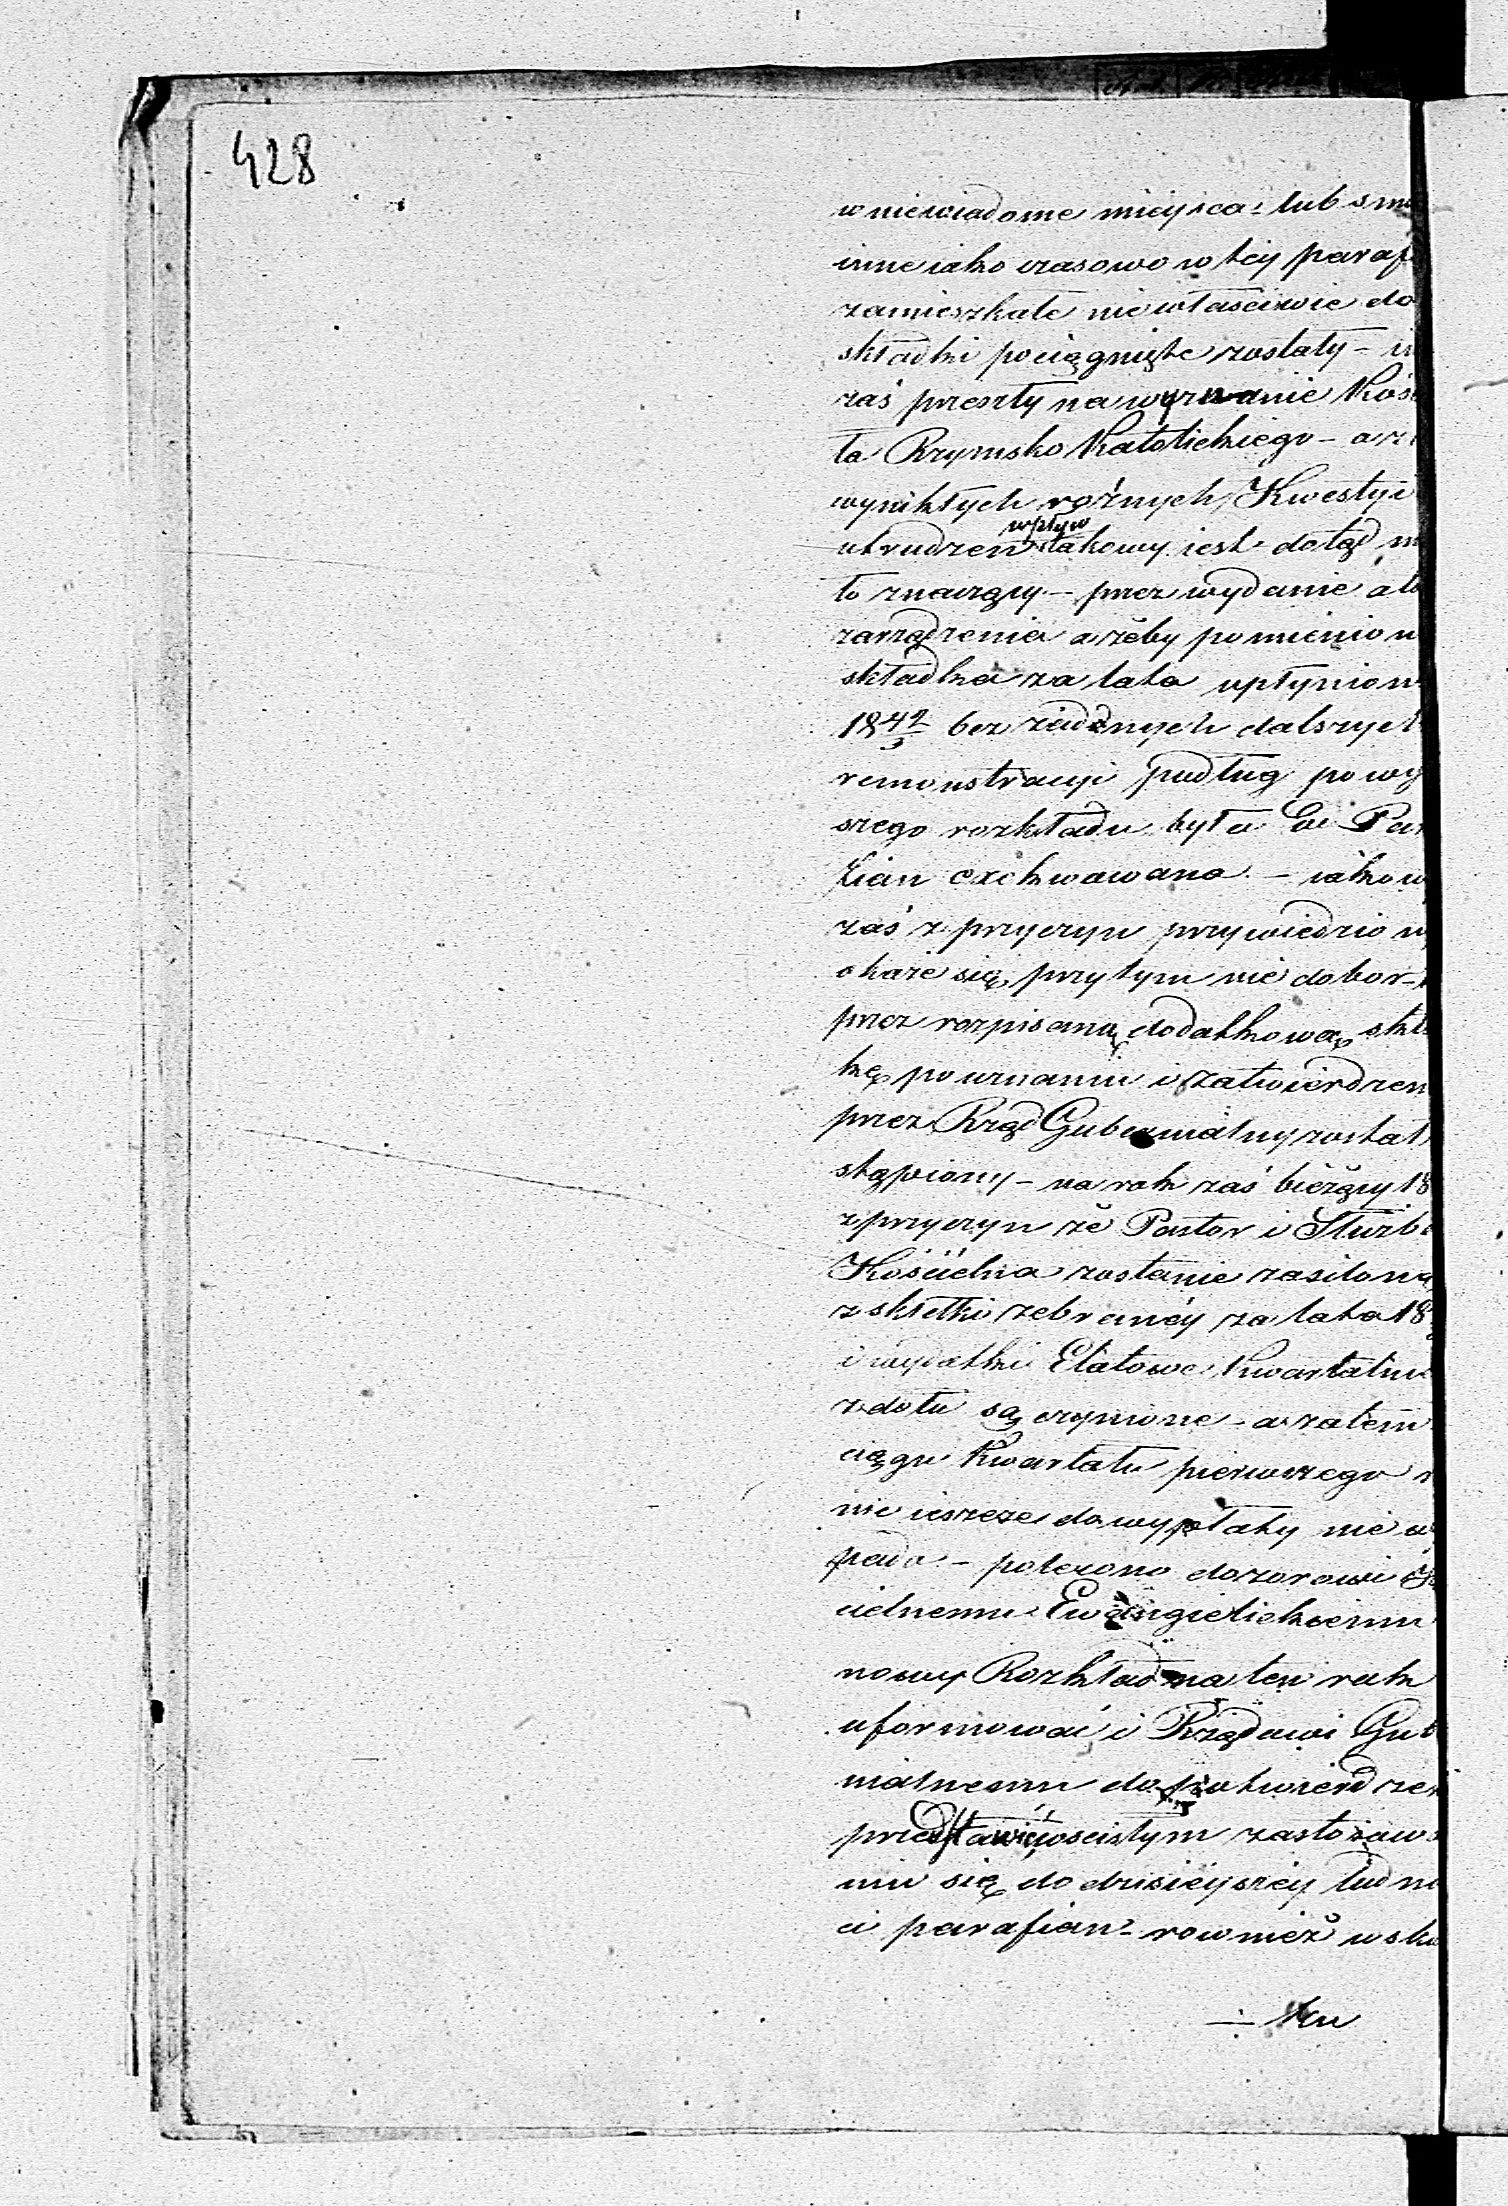 428
w niewiadome mieysca lub
inne iako czasowo w tey paraf
zamieszkałe niewłaściwie do
składki pociągnięte zostały - in
zaś przeszły na wyznanie Kośc
ła Rzymsko Katolickiego - a z
wynikłych rożnych Kwestyi
wpływ
utrudzen takowy iest dotąd
to znaczący - przez wydanie
zarządzenia ażeby pomienion
składka za lata upłynion
1842/3 bez żadnych dalszych
remonstracyi podług powy
szego rozkładu była od Par
fian exekwowana - iakow
zaś z przyczyn przywiedzion
okaże się przytym niedobor
przez rozpisaną dodatkową skł
kę po uznaniu i zatwierdzen
przez Rząd Gubernialny został
stąpiony - na rok zaś bieżący 18
z przyczyn że Pastor i Służb
Kościelna zostanie zasilona
z skłatki zebraney za lata 18
i wydatki Etatowe Kwartalne
z dołu są czynione - a zatem
ciągu Kwartału pierwszego
nie ieszcze do wypłaty nie
pada - polecono dozorowi
cielnemu Ewangielickiemu
nowy Rozkład na ten rok
uformować i Rządowi Gub
nialnemu do zatwierdzen
przedstawić w scisłym zastosow
niu się do dzisieyszey ludno
ci parafian - rownież w sku
- ku